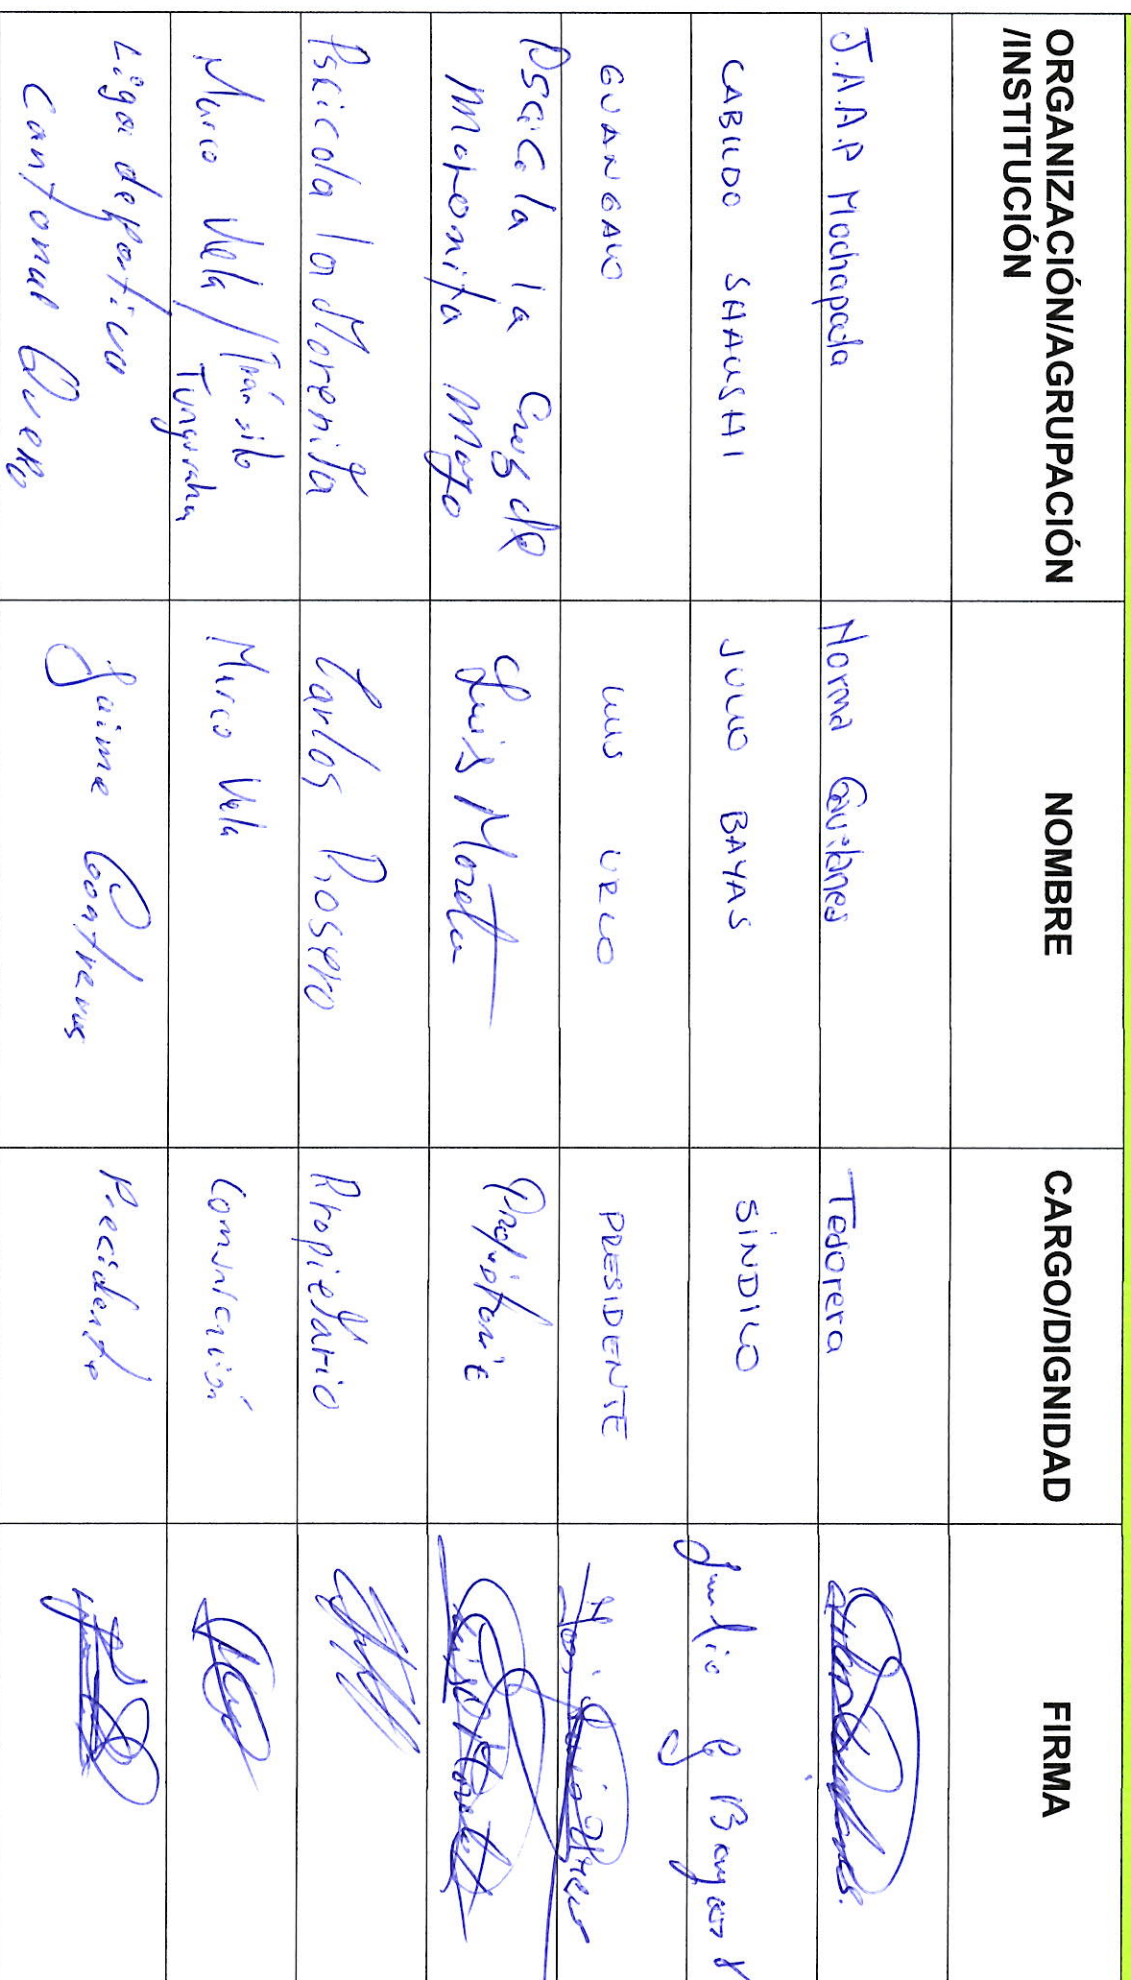 ORGANIZACIÓN/AGRUPACIÓN
/INSTITUCIÓN
NOMBRE
CARGO/DIGNIDAD
FIRMA
J.A.A.P Mochapata
Norma Gavilanes
Tesorera
CABILDO SHAUSHI
JULIO BAYAS
SÍNDICO
Julio G Bayas
GUANGALO
LUIS URCO
PRESIDENTE
Pscicola la Cruz de
Moronita Mayo
Luis Moreta
Luis Moreta
Pscicola la Morenita
Carlos Rosero
Propietario
Marco Vela / Tránsito
Tungurahua
Marco Vela
Comunicación
Liga deportiva
Cantonal Quero
Jaime Contreras
Precidente